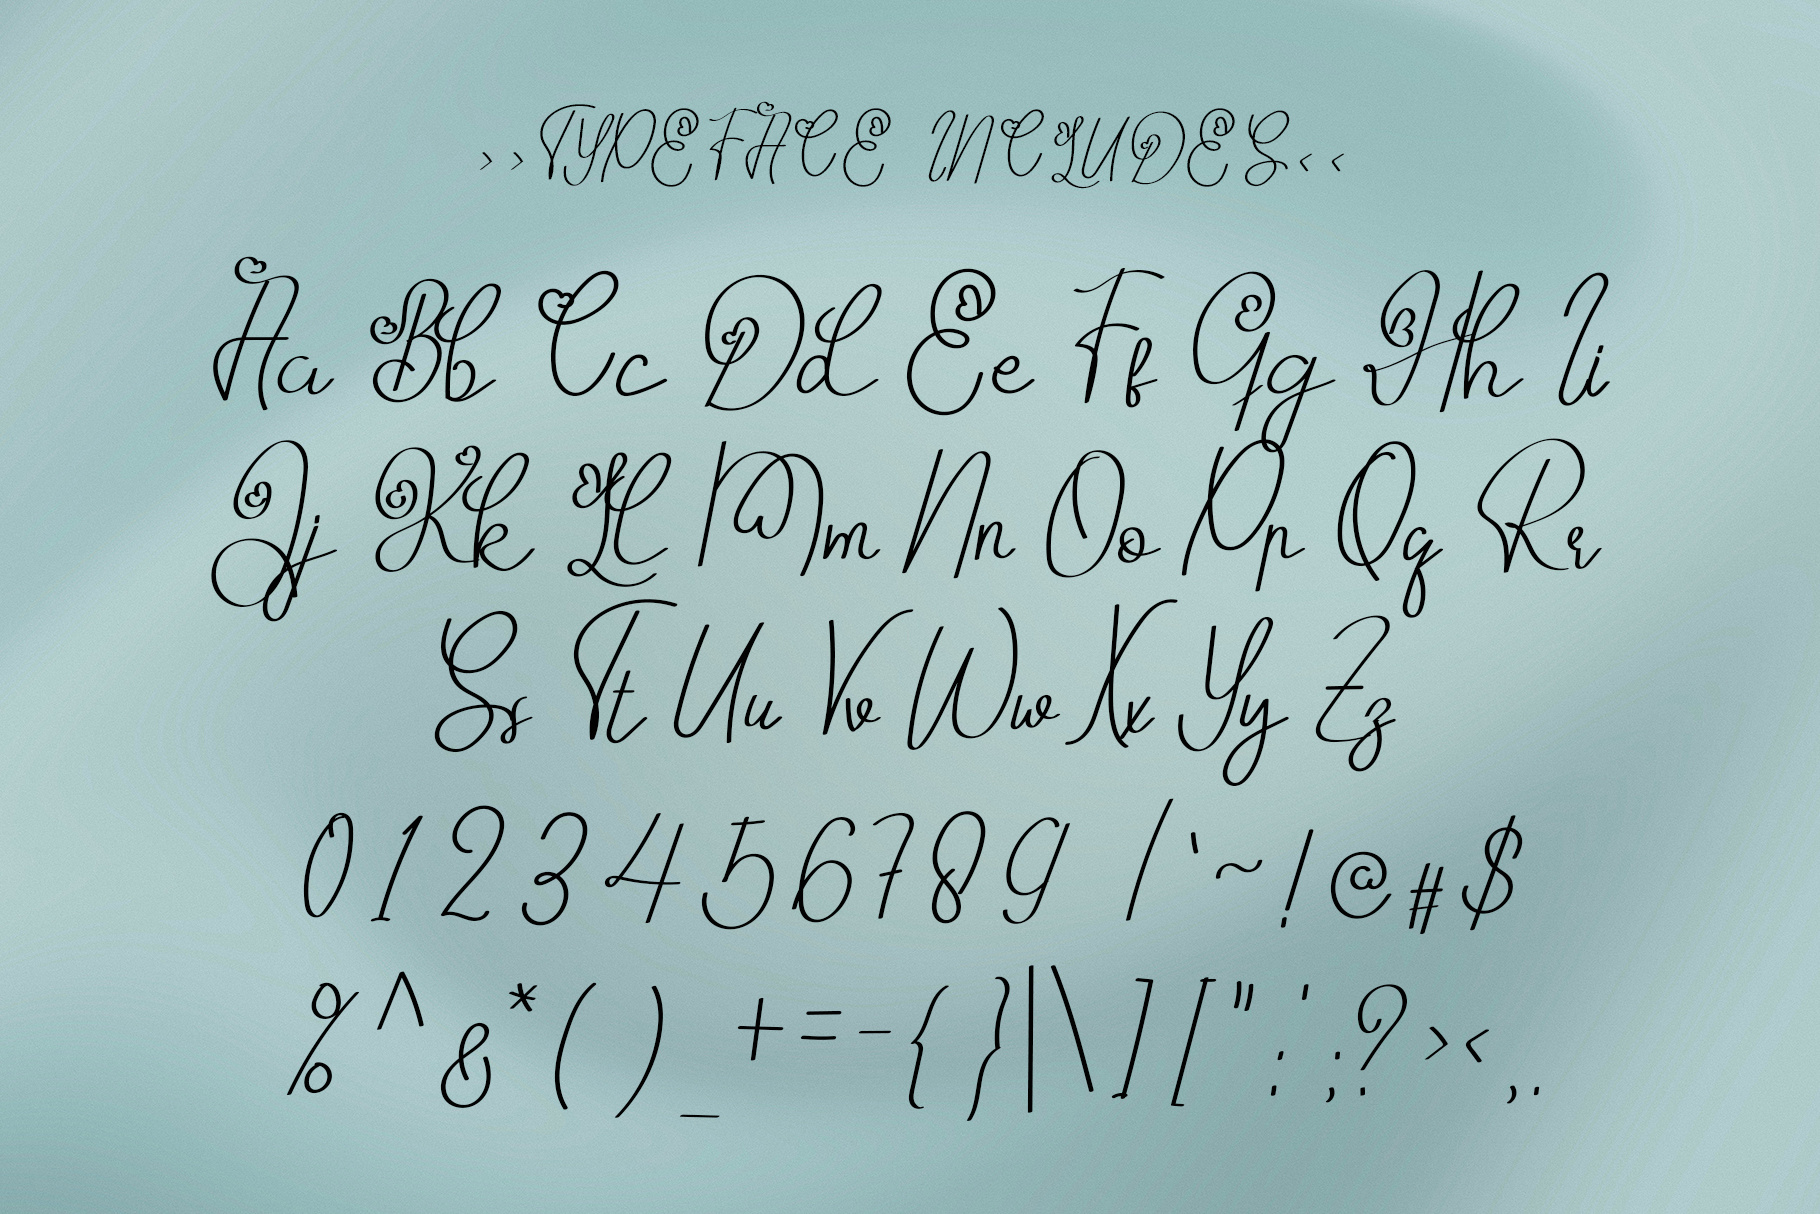 >>TYPEFACE INCLUDES<<
Aa Bb Cc Dd Ee Ff Gg Hh Ii
Jj Kk Ll Mm Nn Oo Pp Qq Rr
Ss Tt Uu Vv Ww Xx Yy Zz
0 1 2 3 4 5 6 7 8 9 / ` ~ ! @ # $
% ^ & * ( ) _ + = - { } | \ ] [ " : ' ; ? > < , .